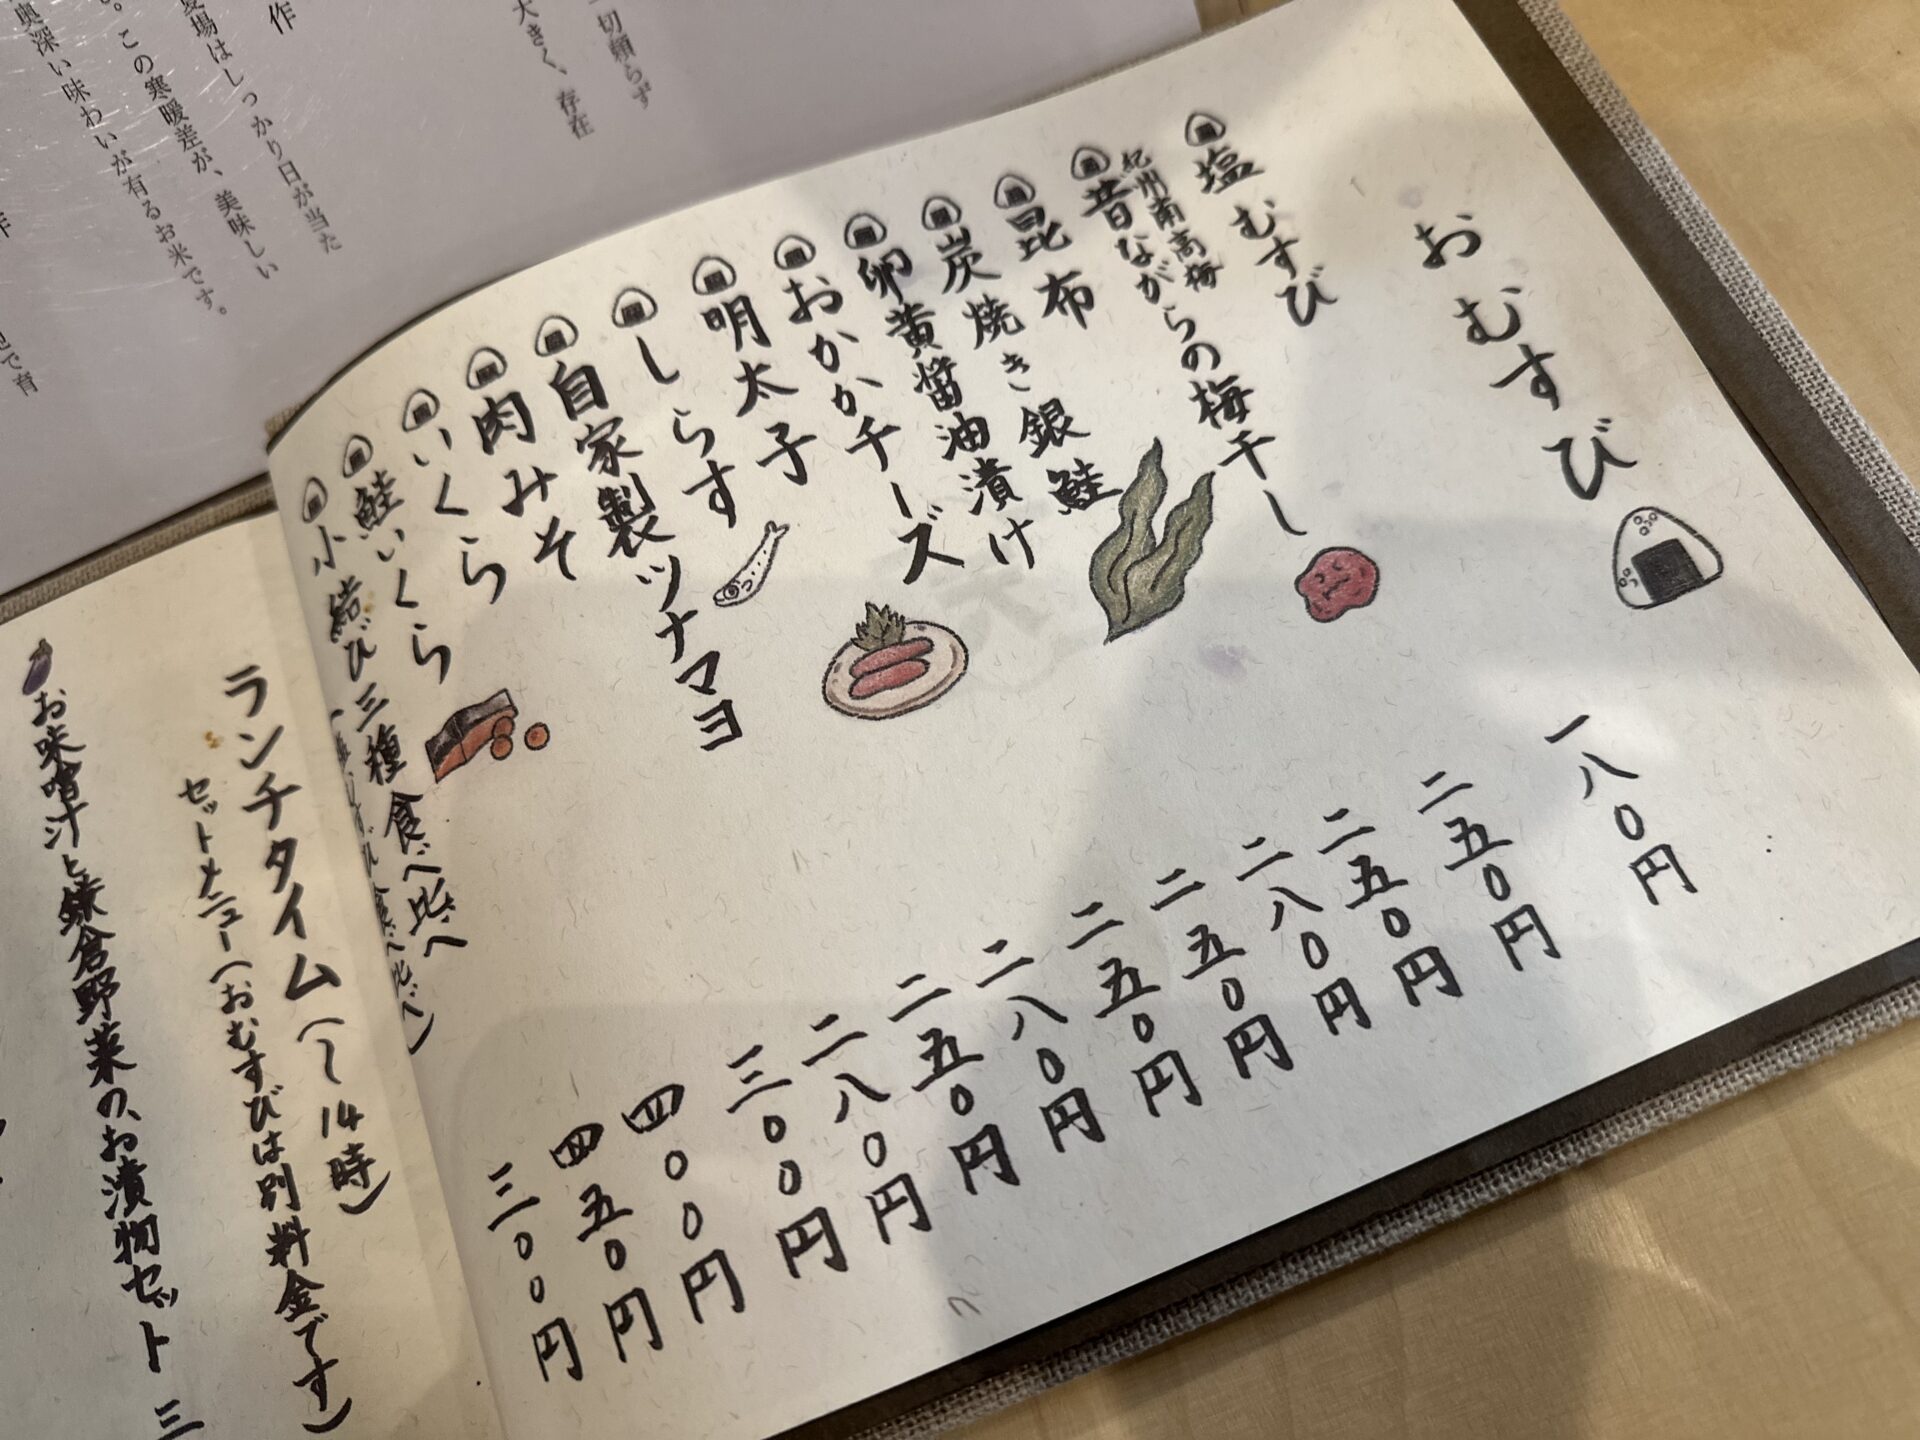 おむすび
塩むすび 一八〇円
紀州南高梅
昔ながらの梅干し 二五〇円
昆布 二五〇円
炭焼き銀鮭 二八〇円
卵黄醤油漬け 二五〇円
おかかチーズ 二五〇円
明太子 二八〇円
しらす 二五〇円
自家製ツナマヨ 二八〇円
肉みそ 三〇〇円
いくら 四〇〇円
鮭いくら 四五〇円
小結び三種食べ比べ 三〇〇円
食べ比べ)
ランチタイム(〜14時)
セットメニュー(おむすびは別料金です)
お味噌汁と鎌倉野菜の、お漬物セット 三
切頼らず
大きく、存在
作
場はしっかり日が当た
。この寒暖差が、美味しい
奥深い味わいが有るお米です。
で育